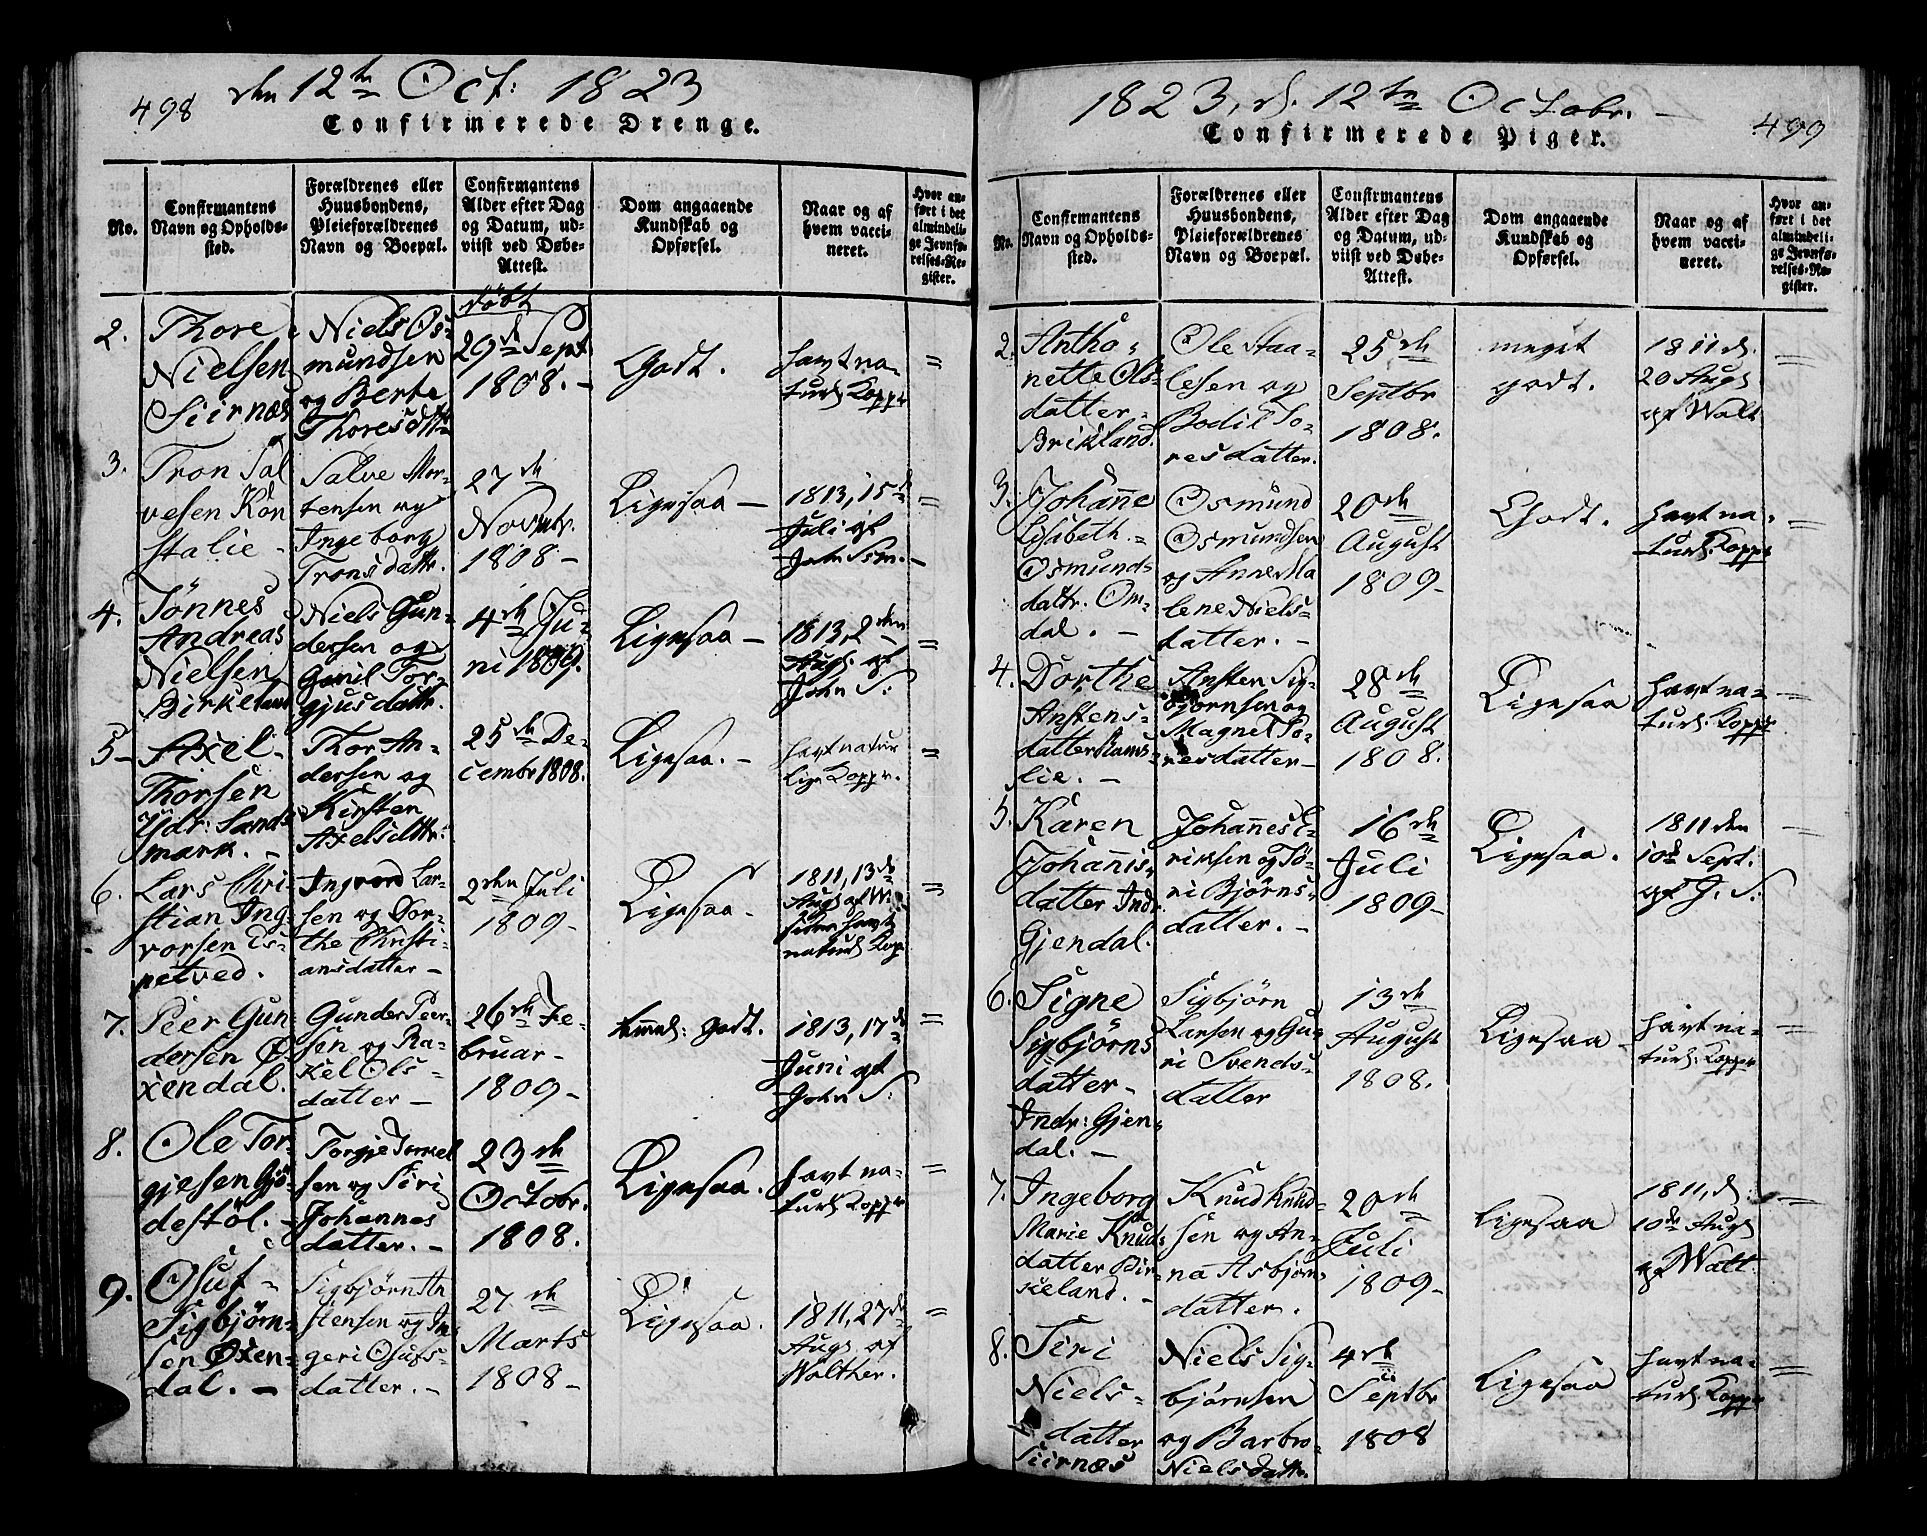 498
den 12te Oct: 1823
Confirmerede Drenge.
No.
Confirmantens
Navn og Opholds-
sted.
Forældrenes eller
Huusbondens,
Pleieforældrenes
Navn og Boepæl.
Confirmantens
Alder efter Dag
og Datum, ud-
viist ved Døbe-
Attest.
Dom angaaende
Kundskab og
Opførsel.
Naar og af
hvem vacci-
neret.
Hvor an-
ført i det
almindeli-
ge Jevnfø-
relses-Re-
gister.
2.
Thore
Nielsen
Siirnæs
Niels Os-
mundsen
og Berte
Thoresdttr
døbt
29de Sept
1808. -
Godt.
havt na-
turl: Kopper
=
3.
Tron Sal
vesen Kon
stalie -
Salve Mor-
tensen og
Ingeborg
Tronsdattr.
27de
Novbr.
1808 -
Ligesaa -
1813, 15de
Juli af
John Sem. -
=
4.
Tønnes
Andreas
Nielsen
Birkeland
Niels Gun-
dersen og
Gunil Tor-
gjusdattr.
4de Ju-
ni 1809.
Ligesaa -
1813, 2den
Aug: af
John S:
=
5 -
Axel -
Thorsen
Ydr: Sands
mark. -
Thor An-
dersen og
Kirsten
Axelsdttr:
25de De-
cembr 1808.
Ligesaa. -
havt natur
lige Kopper.
=
6.
Lars Chri-
stian Ing-
vorsen Es-
petved.
Ingvord Lar-
sen og Dor-
the Christi-
ansdatter -
2den Juli
1809 -
Ligesaa.
1811, 13de
Aug: af W:
siden havt
naturl: Kopp
=
7.
Peer Gun
dersen Ø-
xendal.
Gunder Peer-
sen og Ra-
kel Ols-
datter -
26de Fe-
bruar -
1809 -
temmel: godt.
1813, 17de
Juni af
John S:
=
8.
Ole Tor-
gjesen Gjö-
destöl. -
Torgje Torkel
sen og Siri
Johannes
datter. -
23de
Octobr.
1808.
Ligesaa.
havt na-
turl: Kopper
=
9.
Osuf -
Sigbjørn-
sen Øxen-
dal. -
Sigbjørn An
stensen og In-
geri Osufs-
datter. -
27de
Marts
1808 -
Ligesaa.
1811, 27de
Aug: af
Walther.
=
1823, d. 12te Octobr. -
499
Confirmerede Piger.
No.
Confirmantens
Navn og Opholds-
sted.
Forældrenes eller
Huusbondens,
Pleieforældrenes
Navn og Boepæl.
Confirmantens
Alder efter Dag
og Datum, ud-
viist ved Døbe-
Attest.
Dom angaaende
Kundskab og
Opførsel.
Naar og af
hvem vacci-
neret.
Hvor an-
ført i det
almindeli-
ge Jevnfø-
relses-Re-
gister.
2.
Antho-
nette Ols-
datter -
Brikland.
Ole Aaa-
lesen og
Bodil To-
resdatter.
25de
Septbr
1808.
meget
godt.
1811 d.
20 Aug:
af Walt
=
3.
Johanne
Lisibeth. =
Osmunds
dattr. Om-
dal. -
Osmund
Osmundsen
og Anne Ma
lene Niels-
datter. -
20de
August
1809 -
Godt.
havt na-
turl: Kopper
=
4.
Dorthe
Anstens-
datter Rams-
lie. -
Ansten Sig-
bjørnsen og
Magnel To-
resdatter -
28de
August
1808.
Ligesaa
havt na-
turl: Kopper
=
5.
Karen
Johannis-
datter Indr
Gjendal.
Johannes E-
riksen og Tø-
ri Bjørns-
datter. -
16de
Juli
1809 -
Ligesaa.
1811 den
10de Sept.
af J. S:
=
6.
Signe
Sigbjørns
datter -
Indr: Gjen-
dal. -
Sigbjørn
Larsen og Gu-
ri Svends-
datter
13de
August
1808.
Ligesaa -
havt na-
turl: Kopper
=
7.
Ingeborg
Marie Knuds
datter Bir-
keland. -
Knud Knud-
sen og An-
na Asbjørns
datter.
20de
Juli
1809 -
Ligesaa
1811, d.
10de Aug:
af Walt.
=
8.
Siri
Niels-
datter
Siirnæs
Niels Sig-
bjørnsen
og Barbro-
Nielsdattr.
4de
Septbr
1808
Ligesaa
havt na-
turl: Kopper
=